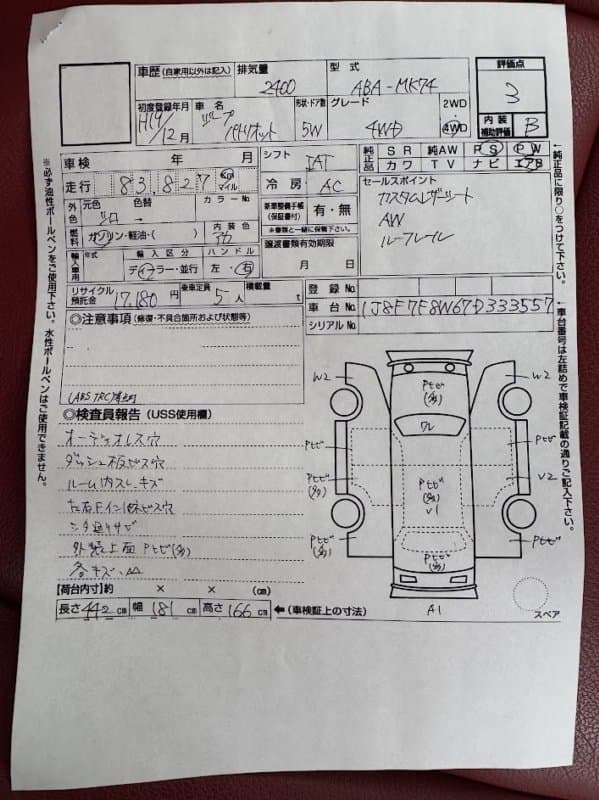 車歴(自家用以外は記入)
排気量
2400
型式
ABA-MK74
評価点
3
初度登録年月
H19/12月
車名
ジープ
パトリオット
形状・ドア数
5W
グレード
4WD
2WD
4WD
内装
補助評価
B
車検 年 月
シフト
AT
純正品
SR 純AW PS PW
カワ TV ナビ エアB
走行 83,827 km マイル
冷房
AC
セールスポイント
カスタムレザーシート
AW
ルーフレール
外色
元色
色替
カラーNo.
シロ →
新車整備手帳
(保証書付)
有・無
※書類と一緒に保管下さい。
燃料
ガソリン・軽油・( )
内装色
アカ
譲渡書類有効期限
月 日
輸入車用
年式
輸入区分
ハンドル
ディーラー・並行
左・右
リサイクル
預託金
17,180円
乗車定員
5人
積載量
t
登録No.
車台No.
1J8F7F8W67D333557
シリアルNo.
◎注意事項(修復・不具合箇所および状態等)
◎検査員報告(USS使用欄)
オーディオレス穴
ダッシュ板ビス穴
ルーム内スレ・キズ
外装上面Pトビ(多)
W2
W2
Pトビ
(多)
ワレ
Pトビ
Pトビ
Pトビ
(多)
Pトビ
(多)
V1
V2
Pトビ
(多)
Pトビ
(多)
Pトビ
A1
スペア
【荷台内寸】約 × × (cm)
長さ 442 cm 幅 181 cm 高さ 166 cm ←(車検証上の寸法)
※必ず油性ボールペンをご使用下さい。水性ボールペンはご使用できません。
←純正品に限り○をつけて下さい。
←車台番号は左詰めで車検証記載の通りご記入下さい。